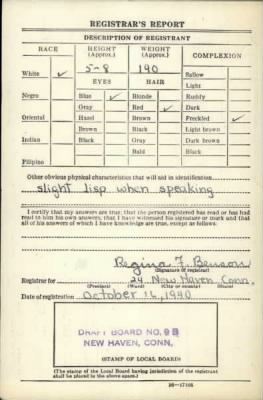 REGISTRAR'S REPORT
DESCRIPTION OF REGISTRANT
RACE HEIGHT (Approx.) WEIGHT (Approx.) COMPLEXION
5-8 190
White ✓ Sallow
EYES HAIR Light
Negro Blue ✓ Blonde Ruddy
Gray Red ✓ Dark
Oriental Hazel Brown Freckled ✓
Brown Black Light brown
Indian Black Gray Dark brown
Bald Black
Filipino
Other obvious physical characteristics that will aid in identification
slight lisp when speaking
I certify that my answers are true; that the person registered has read or has had
read to him his own answers; that I have witnessed his signature or mark and that
all of his answers of which I have knowledge are true, except as follows:
Regina F. Benson
(Signature of registrar)
Registrar for 24 New Haven Conn.
(Precinct) (Ward) (City or county) (State)
Date of registration October 16, 1940
DRAFT BOARD NO. 9B
NEW HAVEN, CONN.
(STAMP OF LOCAL BOARD)
(The stamp of the Local Board having jurisdiction of the registrant
shall be placed in the above space.)